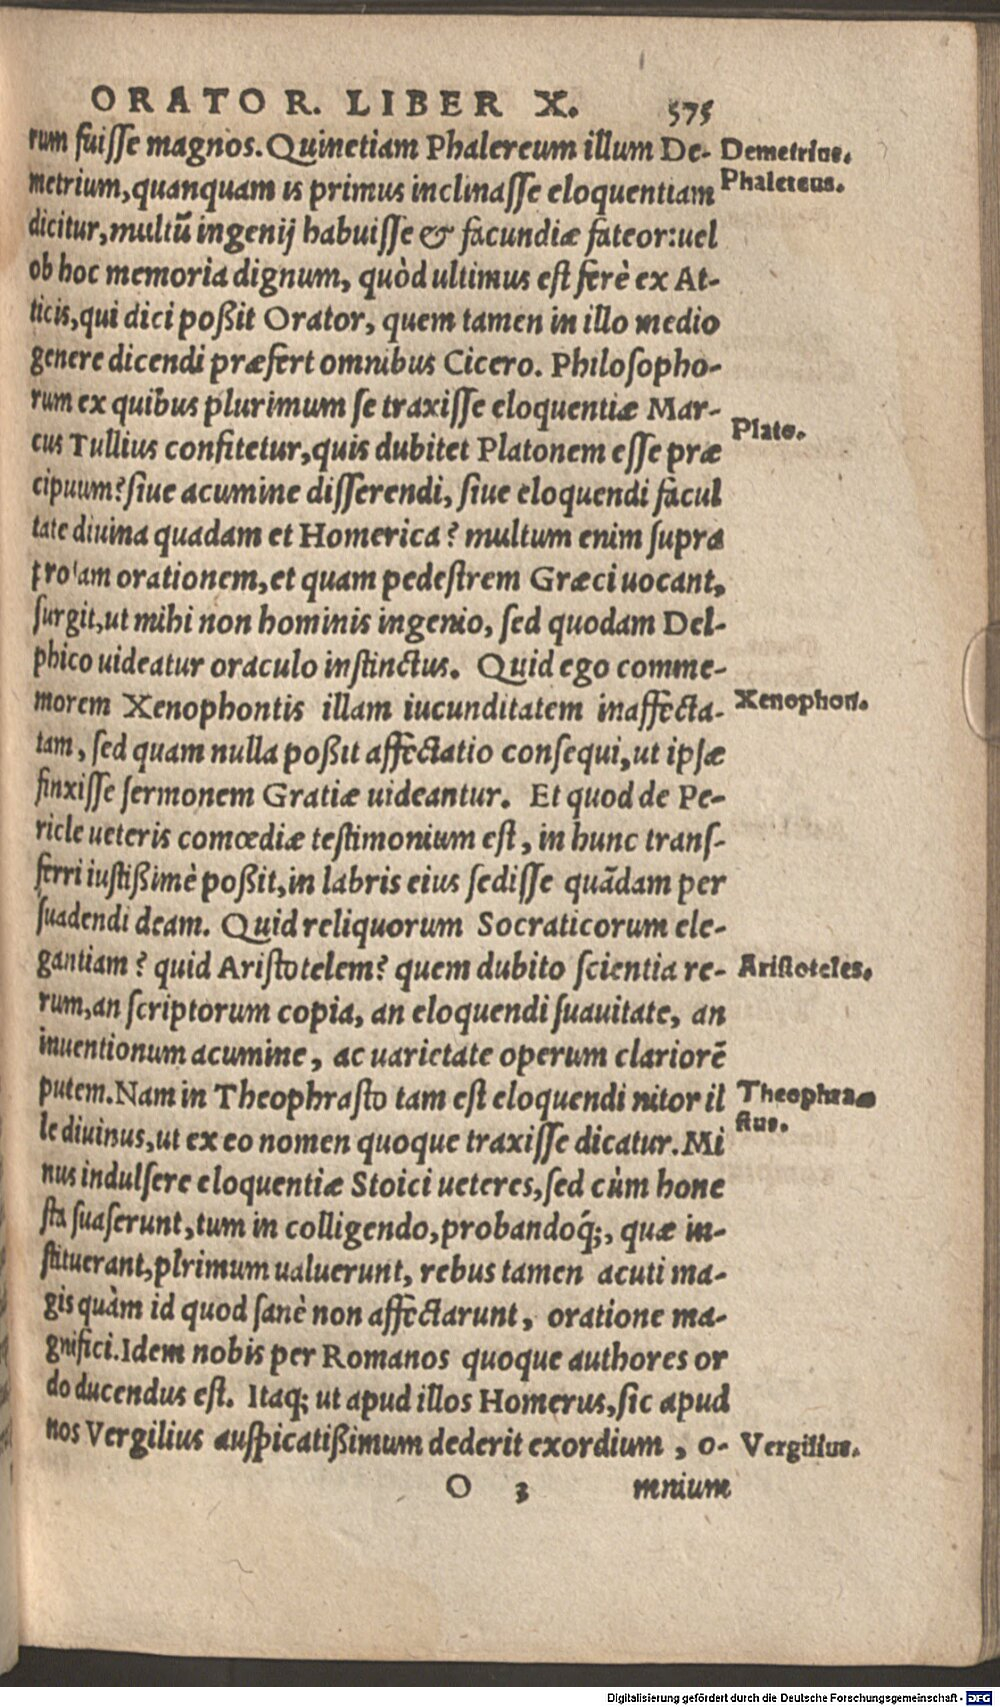 ORATOR. LIBER X. 575
rum fuisse magnos. Quinetiam Phalereum illum De-
Demetrius.
Phalereus.
metrium, quanquam is primus inclinasse eloquentiam
dicitur, multũ ingenij habuisse & facundiæ fateor: uel
ob hoc memoria dignum, quòd ultimus est ferè ex At-
ticis, qui dici poßit Orator, quem tamen in illo medio
genere dicendi præfert omnibus Cicero. Philosopho-
rum ex quibus plurimum se traxisse eloquentiæ Mar-
Plato.
cus Tullius confitetur, quis dubitet Platonem esse præ
cipuum? siue acumine disserendi, siue eloquendi facul
tate diuina quadam et Homerica? multum enim supra
prosam orationem, et quam pedestrem Græci uocant,
surgit, ut mihi non hominis ingenio, sed quodam Del-
phico uideatur oraculo instinctus. Quid ego comme-
morem Xenophontis illam iucunditatem inaffecta-
Xenophon.
tam, sed quam nulla poßit affectatio consequi, ut ipsæ
finxisse sermonem Gratiæ uideantur. Et quod de Pe-
ricle ueteris comœdiæ testimonium est, in hunc trans-
ferri iustißimè poßit, in labris eius sedisse quãdam per
suadendi deam. Quid reliquorum Socraticorum ele-
gantiam? quid Aristotelem? quem dubito scientia re-
Aristoteles.
rum, an scriptorum copia, an eloquendi suauitate, an
inuentionum acumine, ac uarietate operum clariorẽ
putem. Nam in Theophrasto tam est eloquendi nitor il
Theophra-
stus.
le diuinus, ut ex eo nomen quoque traxisse dicatur. Mi
nus indulsere eloquentiæ Stoici ueteres, sed cùm hone
sta suaserunt, tum in colligendo, probandoq́;, quæ in-
stituerant, plrimum ualuerunt, rebus tamen acuti ma-
gis quàm id quod sanè non affectarunt, oratione ma-
gnifici. Idem nobis per Romanos quoque authores or
do ducendus est. Itaq; ut apud illos Homerus, sic apud
nos Vergilius auspicatißimum dederit exordium, o-
Vergilius.
O 3 mnium
Digitalisierung gefördert durch die Deutsche Forschungsgemeinschaft - DFG